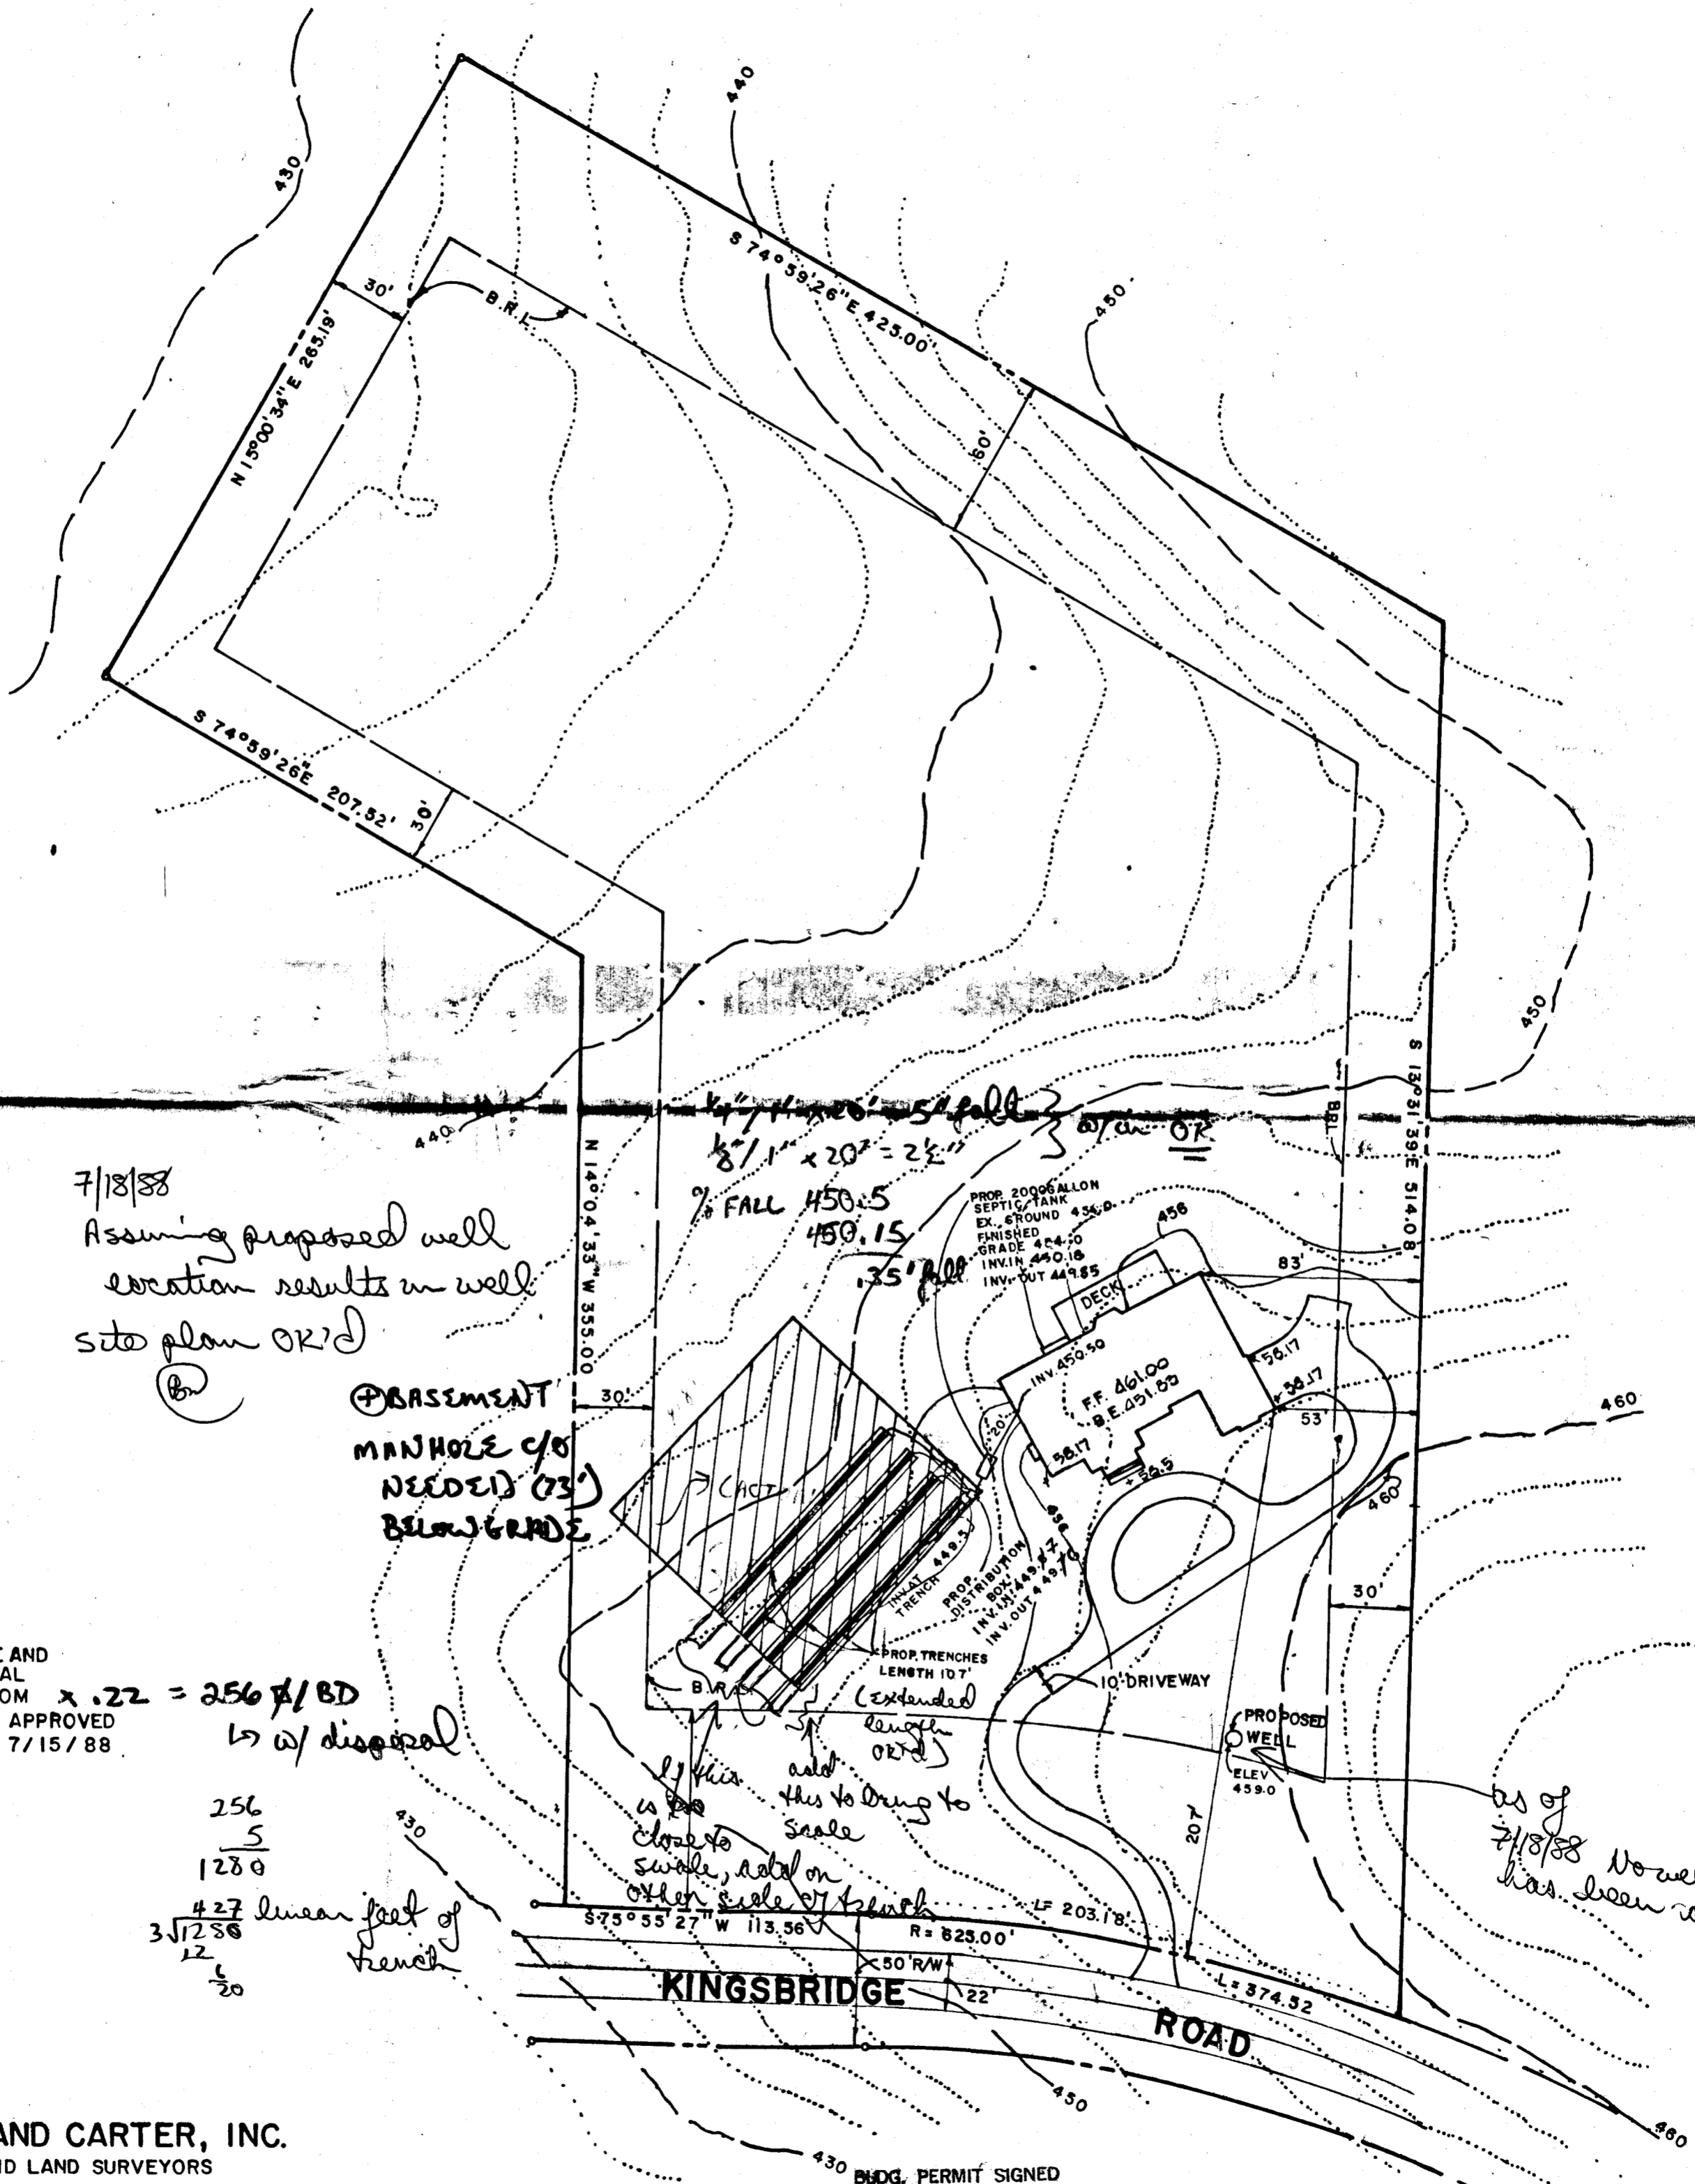 440
430
S 74°59'26"E 425.00'
450
30'
B.R.L.
N 15°00'34"E 265.19'
60'
S 74°59'26"E 207.52'
30'
450
S 13°31'39"E 514.08'
BRL
440
1/4"/1' x 20' = 5" fall
1/8"/1' x 20' = 2½"
OK
% FALL 450.5
450.15
.35' fall
7/18/88
Assuming proposed well
location results in well
site plan OK'd
N 14°04'33"W 355.00'
30'
⊕BASEMENT
MANHOLE C/O
NEEDED (73')
BELOW GRADE
PROP. 2000GALLON
SEPTIC TANK
EX. GROUND 456.0
FINISHED
GRADE 454.0
INV.IN 450.18
INV.OUT 449.85
456
DECK
83'
INV.450.50
F.F. 461.00
B.E.451.83
58.17
58.17
58.17
58.5
53'
20'
460
460
456
INV.AT
TRENCH 449.5
PROP.
DISTRIBUTION
BOX
INV. IN
INV. OUT
30'
PROP. TRENCHES
LENGTH 107'
(Extended
length
OK'd)
B.R.L.
10' DRIVEWAY
PROPOSED
WELL
ELEV
459.0
207'
E AND
AL
OM x .22 = 256 ⌀/BD
APPROVED
7/15/88
↳ w/ disposal
256
5
1280
427 linear feet of
3√1280
12
6
20
trench
430
If this
is too
close to
swale, add on
other side of trench
add
this to bring to
scale
as of
7/18/88 No
has been
S 75°55'27"W 113.56'
L= 203.18'
R= 625.00'
50' R/W
22'
L= 374.52
KINGSBRIDGE ROAD
450
460
430
AND CARTER, INC.
ND LAND SURVEYORS
BLDG. PERMIT SIGNED